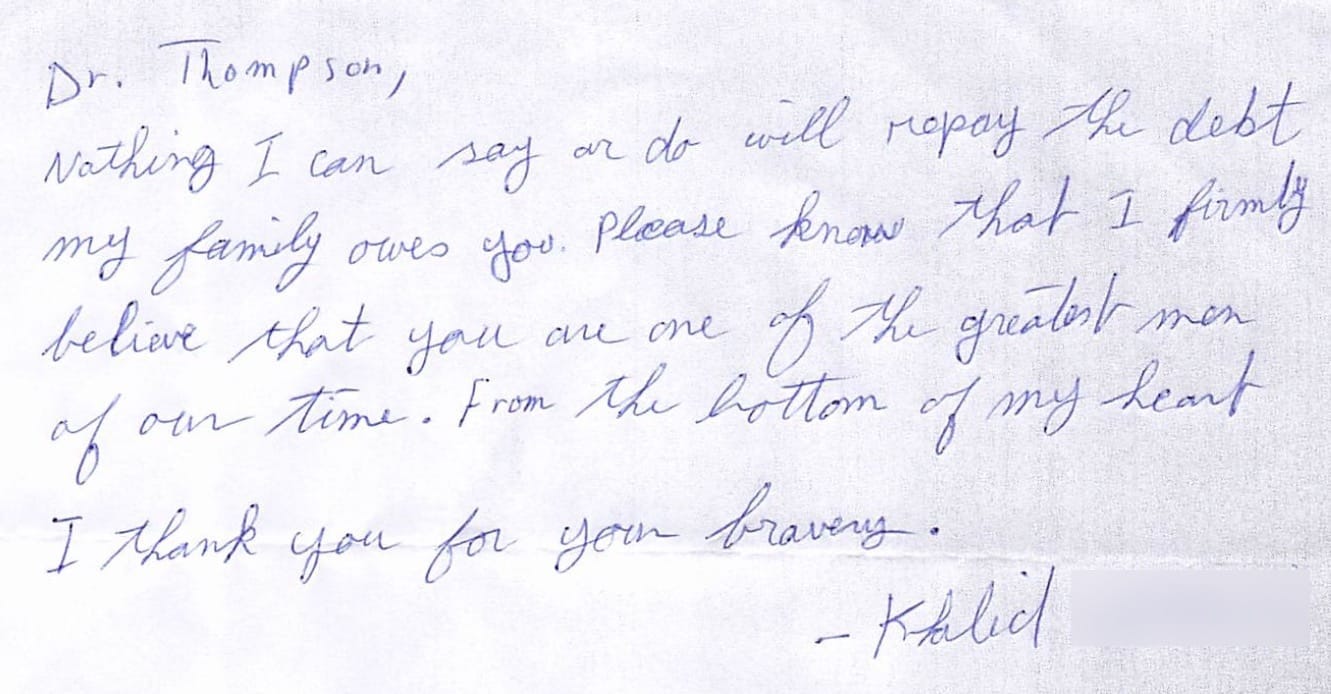 Dr. Thompson,
Nothing I can say or do will repay the debt
my family owes you. Please know that I firmly
believe that you are one of the greatest men
of our time. From the bottom of my heart
I thank you for your bravery.
- Khalid